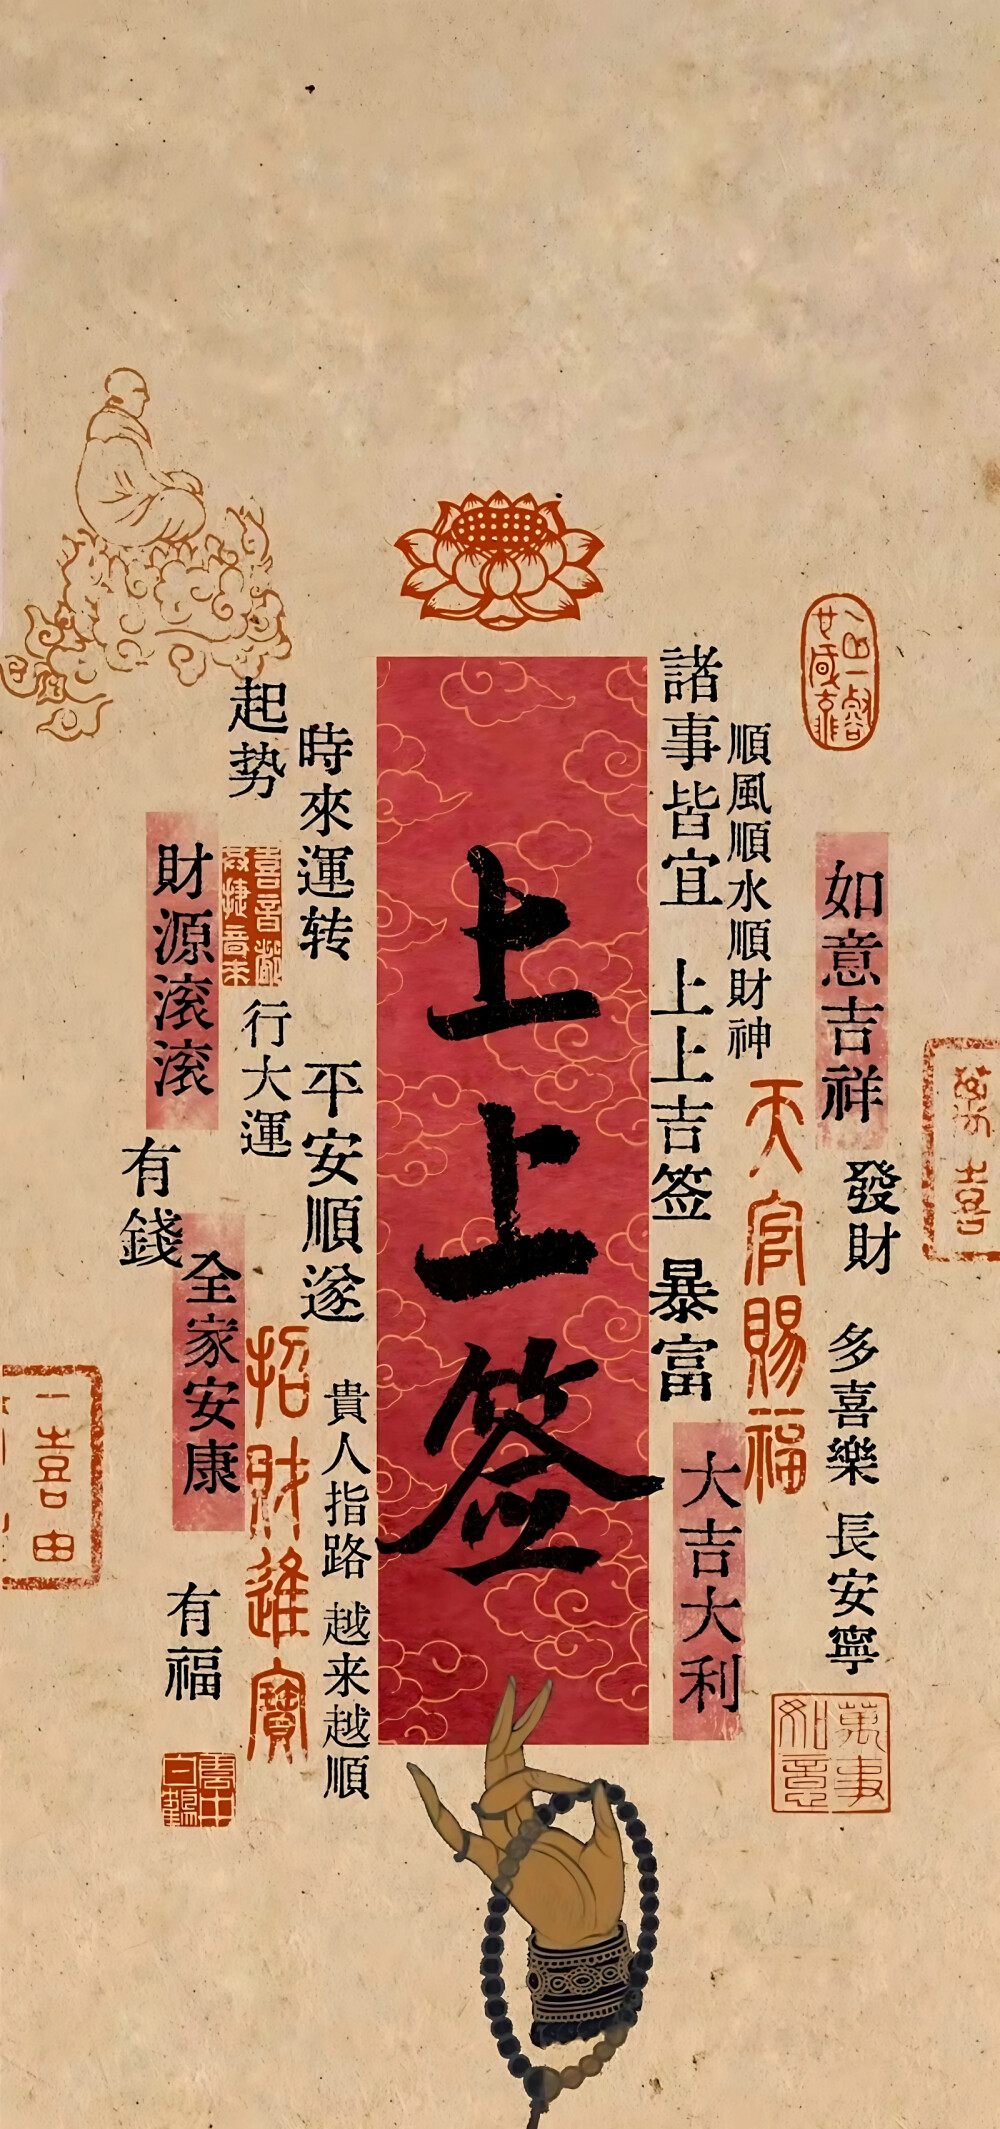 上上签
諸事皆宜 上上吉签 暴富
順風順水順財神
天官賜福
大吉大利
如意吉祥
發財
多喜樂 長安寧
萬事如意
萬喜
時來運转 平安順遂
起势
行大運
財源滚滚
有錢
全家安康
招財進寶
貴人指路 越来越順
有福
一喜由